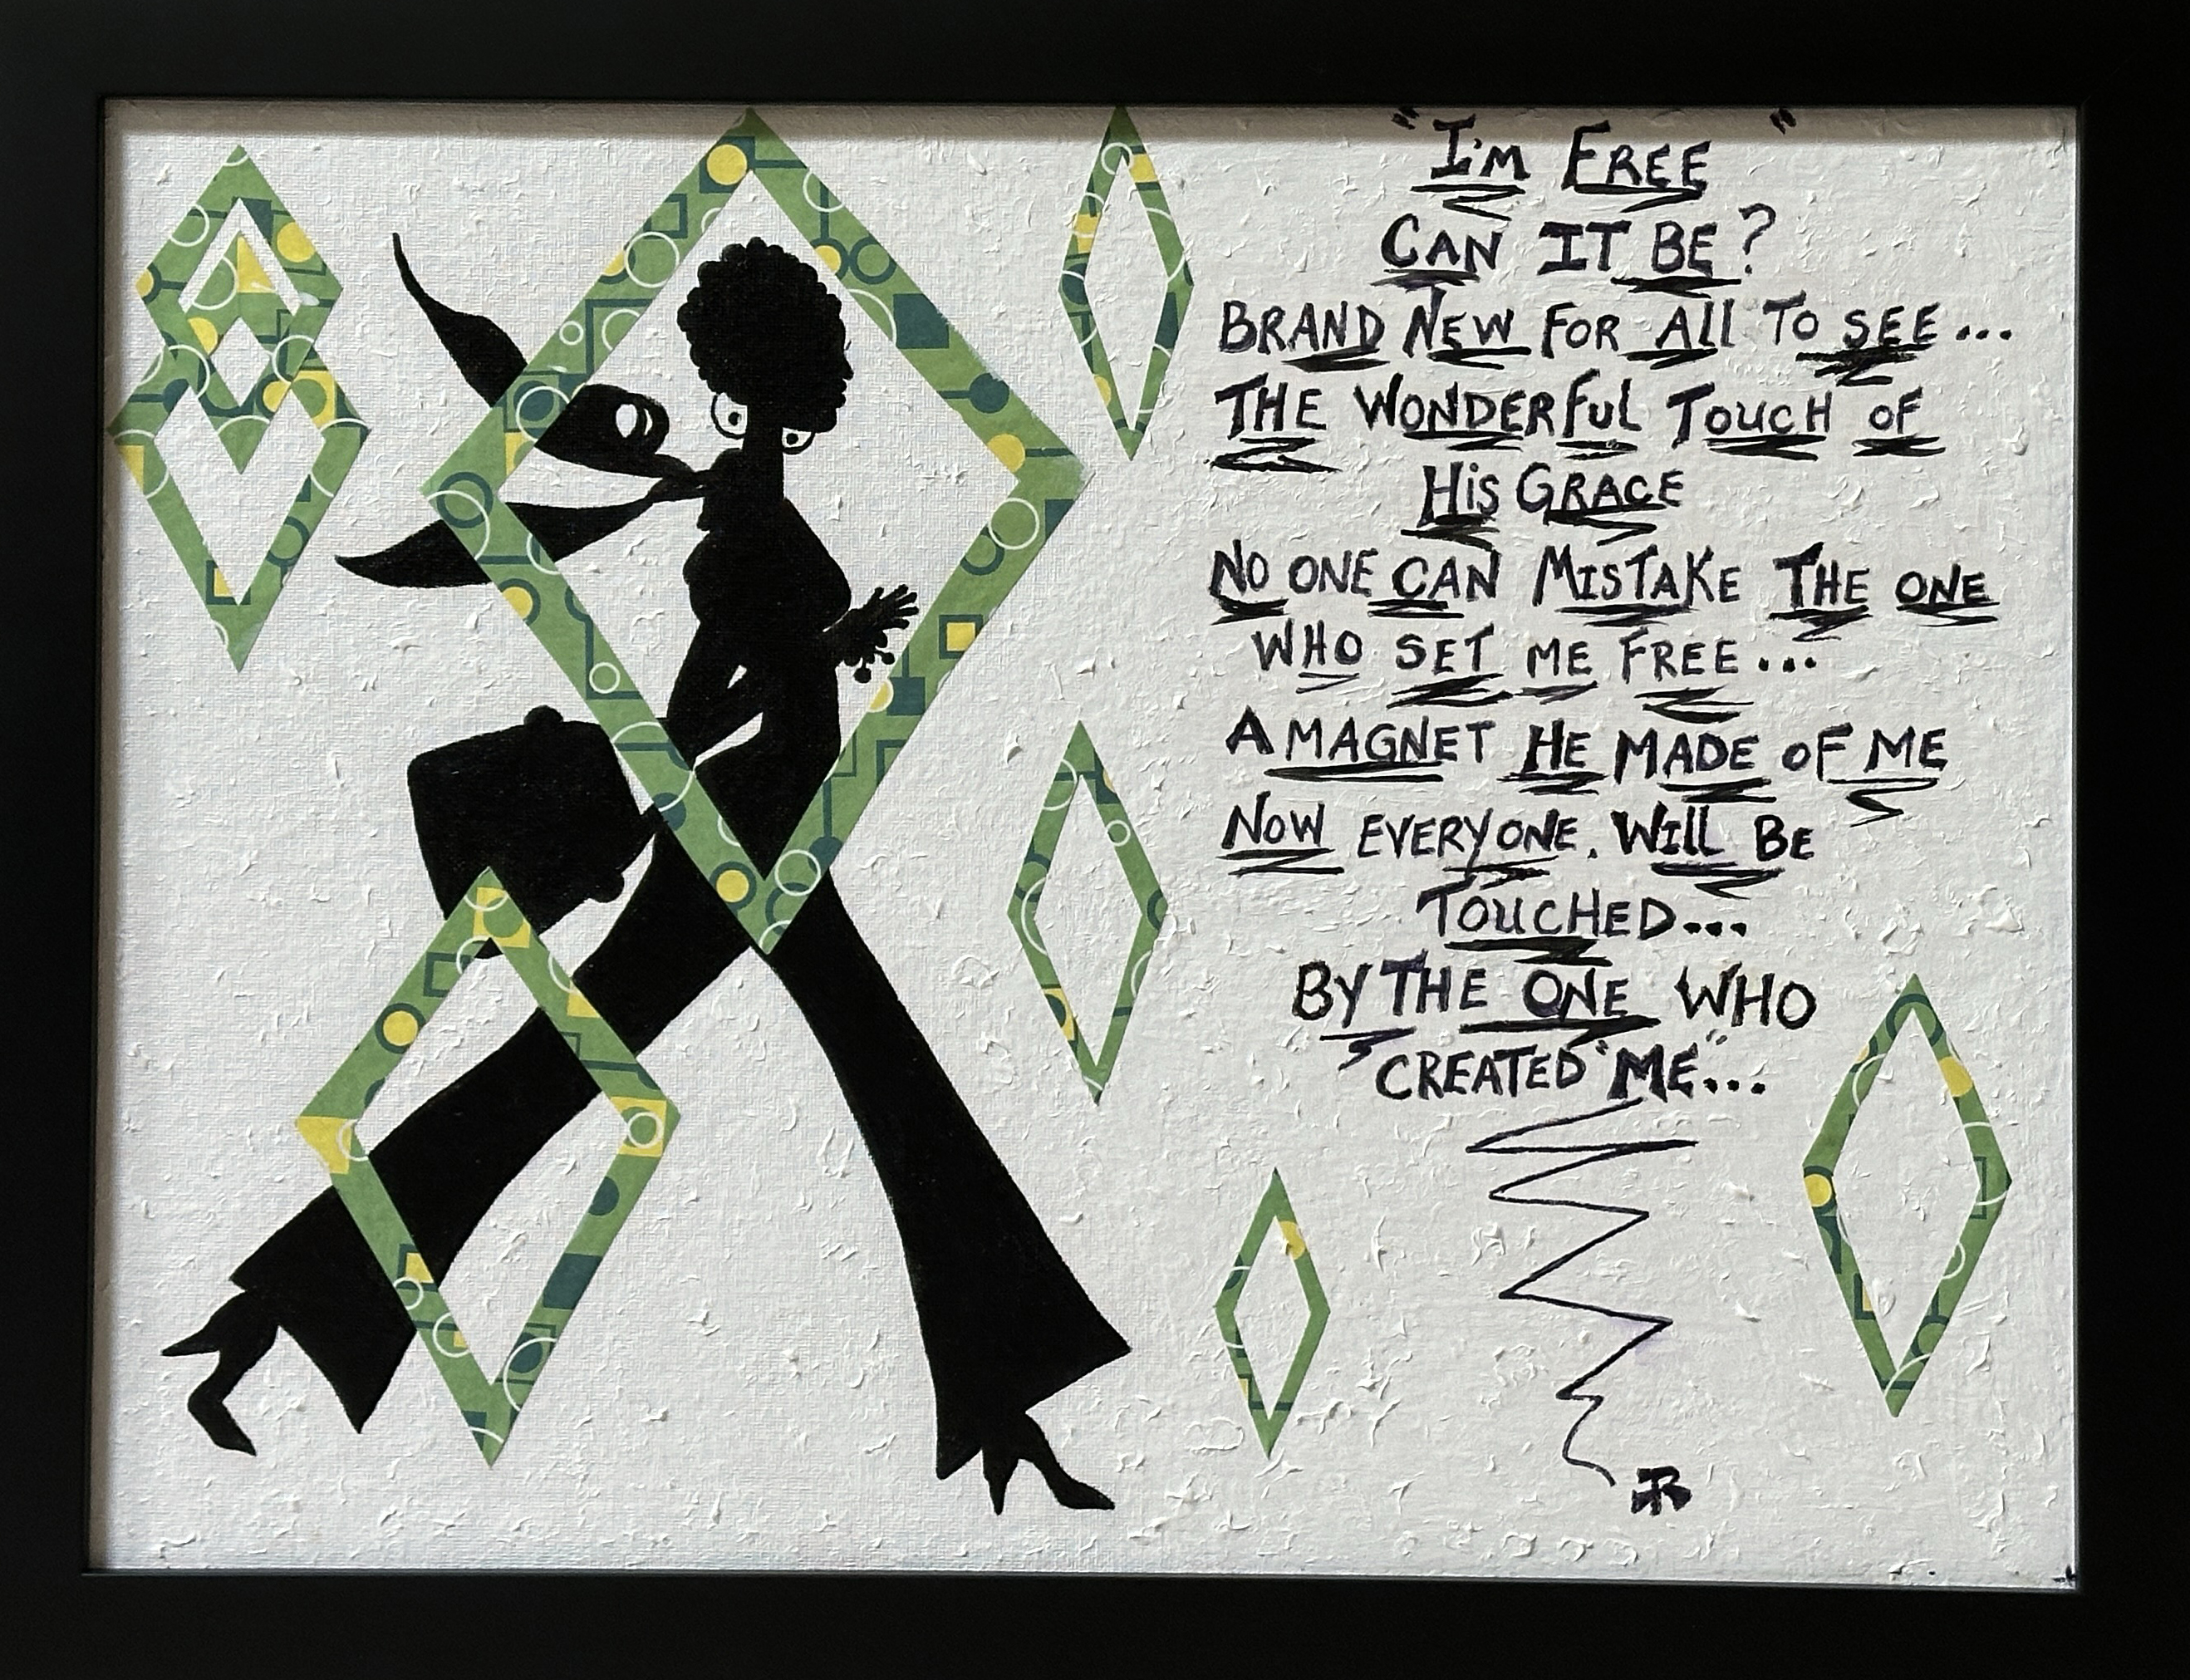 "I'M FREE"
CAN IT BE?
BRAND NEW FOR All TO SEE...
THE WONDERFUL TOUCH OF
HiS GRACE
NO ONE CAN MISTAKE THE ONE
WHO SET ME FREE...
A MAGNET HE MADE OF ME
NOW EVERYONE. WIll BE
TOUCHED...
BY THE ONE WHO
CREATED "ME"...